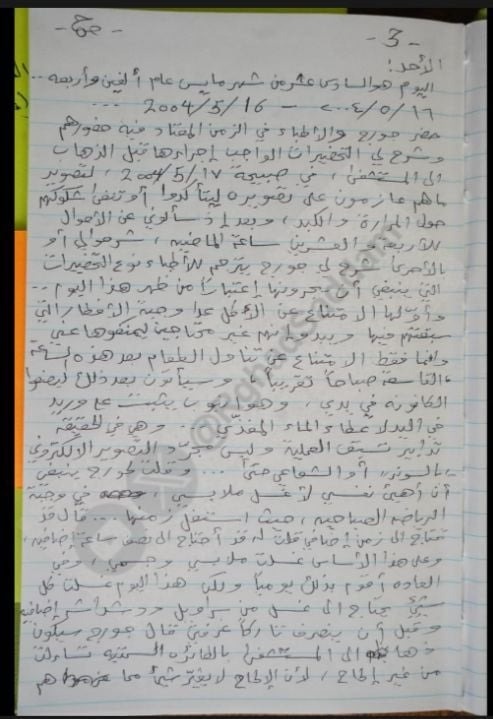 - 3 -
الأحد:
اليوم هو السادس عشر من شهر مايس عام ألفين وأربعه ..
٢٠٠٤/٥/١٦ - 2004/5/16 ...
حضر جورج والأطباء في الزمن المعتاد فيه حضورهم
وشرح لي التحضيرات الواجب إجراءها قبل الذهاب
الى المستشفى، في صبيحة 2004/5/17، لتصوير
ماهم عازمون على تصويره ليتأكدوا أو تنفى شكوكهم
حول المرارة والكبد، وبعد إذ سألوني عن الأحوال
للأربعة والعشرين ساعة الماضيه، شرحوا لي أو
بالأحرى شرح لي جورج يترجم للأطباء نوع التحضيرات
التي ينبغي أن يجرونها إعتباراً من ظهر هذا اليوم ..
وأولها الامتناع عن الأكل عدا وجبة الإفطار التي
سبقتهم فيها ويبدو أنهم غير محتاجين ليمنعوها عني
وانما فقط الامتناع عن تناول الطعام بعد هذه الساعة
التاسعة صباحاً تقريباً، وسيأتون بعد ذلك ليضعوا
الكانونه في يدي، وهو انبوب يثبت على وريد
في اليد لاعطاء الماء المغذي .. وهي في الحقيقة
تدابير تسبق العملية وليس مجرد التصوير الالكتروني
بالسونر، أو الشعاعي حتى ... وقلت لجورج ينبغي
أن أهيئ نفسي لأغسل ملابسي، في وجبة
الرياضة الصباحيه، حيث استغل زمنها .. قال قد
تحتاج الى زمن إضافي قلت له قد أحتاج الى نصف ساعة إضافيه،
وعلى هذا الأساس غسلت ملابسي وجسمي وفي
العاده أقوم بذلك يومياً ولكن هذا اليوم غسلت كل
شيئ يحتاج الى غسل من سراويل ودشداشه إضافيه
وقبل أن ينصرف تاركاً غرفتي قال جورج سيكون
ذهابك الى المستشفى بالطائره السمتيه تساءلت
من غير إلحاح، لأن الإلحاح لا يغير شيئاً مما هم
@RghadSaddam